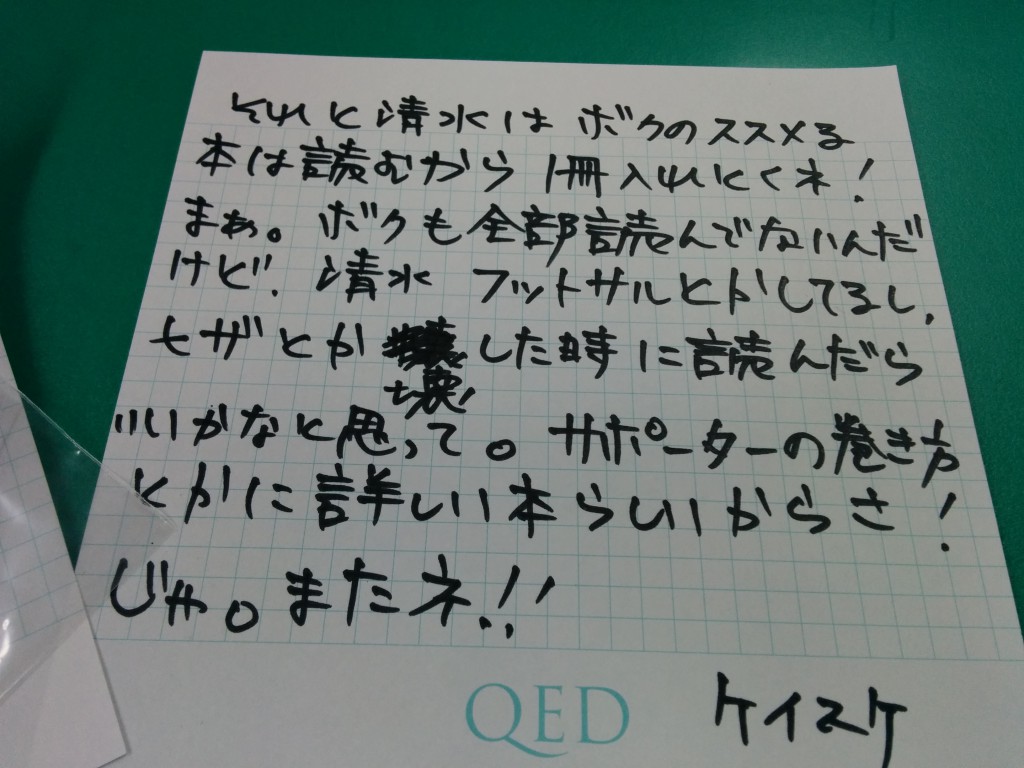 それと清水はボクのススメる
本は読むから1冊入れとくネ!
まぁ。ボクも全部読んでないんだ
けど!清水フットサルとかしてるし,
ヒザとか壊した時に読んだら
いいかなと思って。サポーターの巻き方
とかに詳しい本らしいからさ!
じゃ。またネ!!
QED ケイスケ